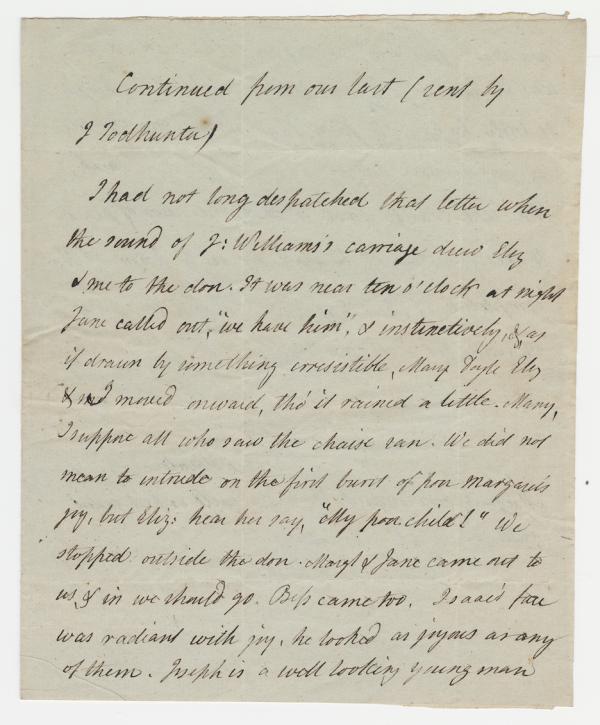 Continued from our last (sent by
J Todhunter)
I had not long despatched that letter when
the sound of J: Williams's carriage drew Eliz
& me to the door. It was near ten o'clock at night
Jane called out, "we have him", & instinctively, & as
if drawn by something irresistible, Mary Doyle Eliz
& I moved onward, tho' it rained a little. Many,
I suppose all who saw the chaise ran. We did not
mean to intrude on the first burst of poor Margaret's
joy, but Eliz: hear her say, "My poor child!" We
stopped outside the door. Margt & Jane came out to
us, & in we should go. Bess came too. Isaac's face
was radiant with joy, he looked as joyous as any
of them. Joseph is a well looking young man